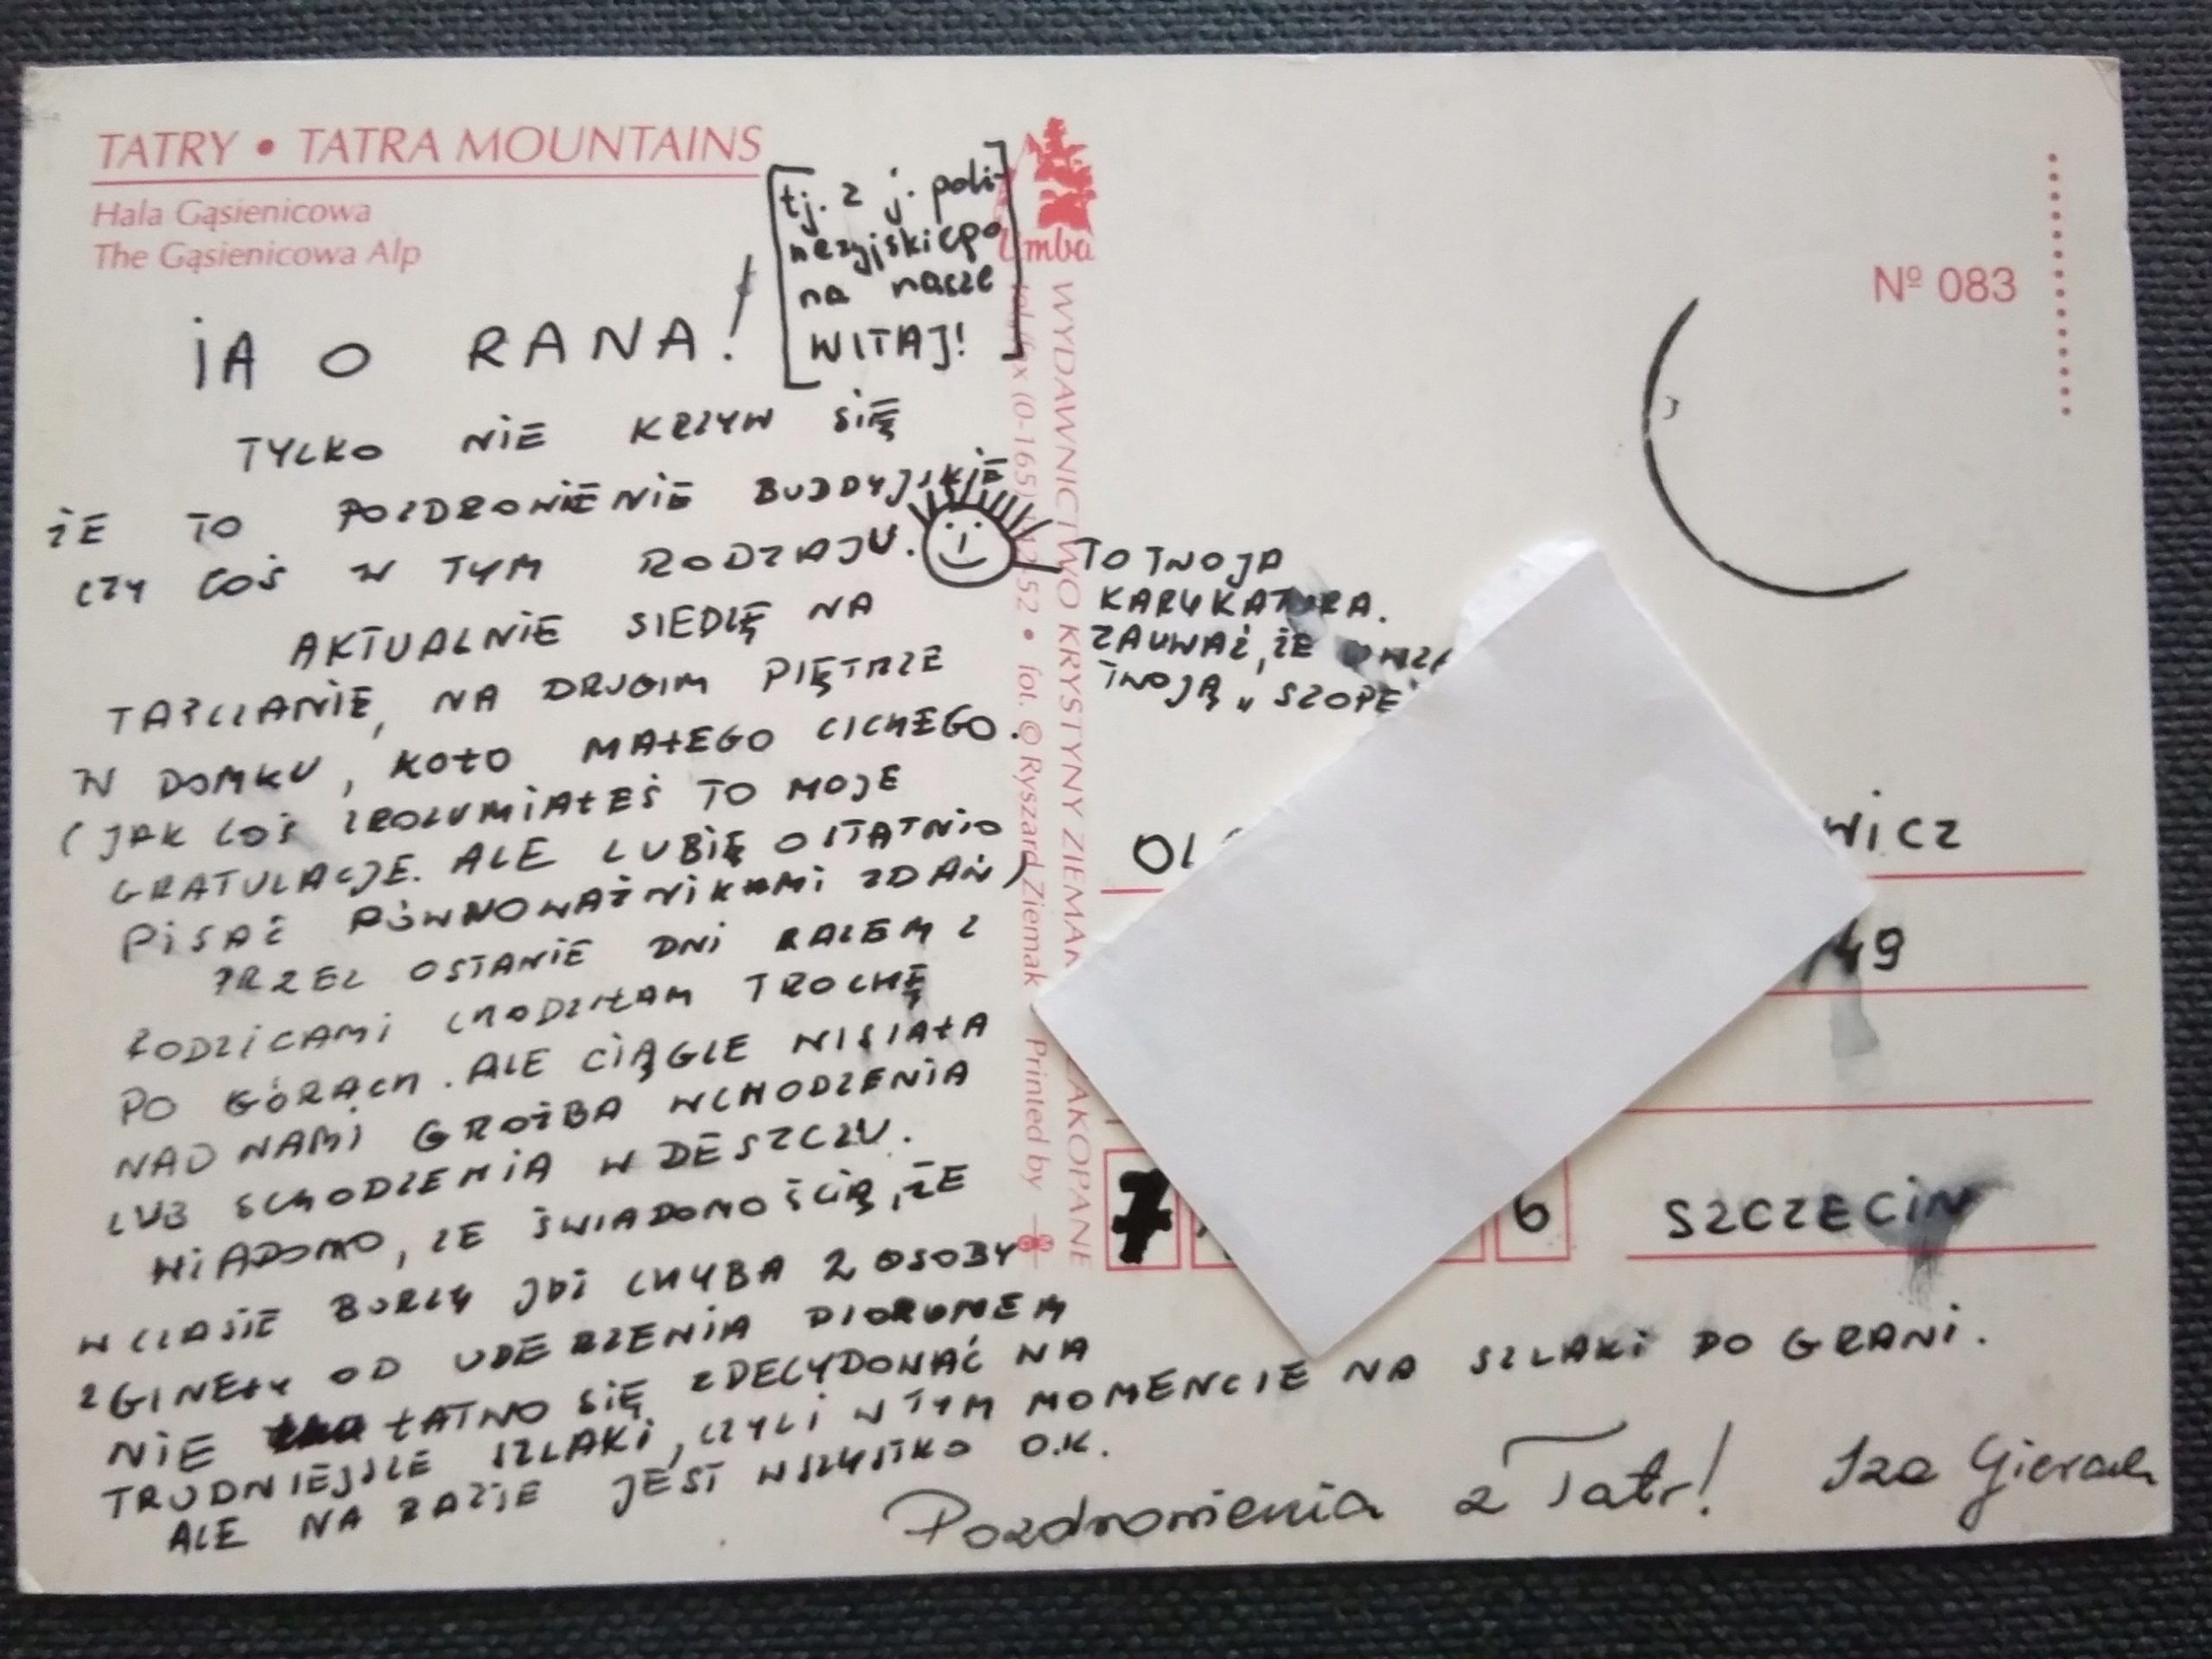 TATRY • TATRA MOUNTAINS
Hala Gąsienicowa
The Gąsienicowa Alp
IA O RANA!
[tj. z j. poli-
nezyjskiego
na nasze
WITAJ!]
TYLKO NIE KRZYW SIĘ
ŻE TO POZDROWIENIE BUDDYJSKIE
CZY COŚ W TYM RODZAJU.
AKTUALNIE SIEDZĘ NA
TAPCZANIE, NA DRUGIM PIĘTRZE
W DOMKU, KOŁO MAŁEGO CICHEGO.
(JAK COŚ ZROZUMIAŁEŚ TO MOJE
GRATULACJE. ALE LUBIĘ OSTATNIO
PISAĆ RÓWNOWAŻNIKAMI ZDAŃ)
PRZEZ OSTANIE DNI RAZEM Z
RODZICAMI CHODZIŁAM TROCHĘ
PO GÓRACH. ALE CIĄGLE WISIAŁA
NAD NAMI GROŹBA WCHODZENIA
LUB SCHODZENIA W DESZCZU.
WIADOMO, ŻE ŚWIADOMOŚCIĄ, ŻE
W CZASIE BURZY JUŻ CHYBA 2 OSOBY
ZGINEŁY OD UDERZENIA PIORUNEM
NIE ŁATWO SIĘ ZDECYDOWAĆ NA
TRUDNIEJSZE SZLAKI, CZYLI W TYM MOMENCIE NA SZLAKI DO GRANI.
ALE NA RAZIE JEST WSZYSTKO O.K.
Pozdrowienia z Tatr! Iza Gierach
TO TWOJA
KARYKATURA.
ZAUWAŻ, ŻE
TWOJĄ „SZOPE
Limba
WYDAWNICTWO KRYSTYNY ZIEMAK ZAKOPANE
tel./fax (0-165) 52 • fot. © Ryszard Ziemak Printed by
Nº 083
OL WICZ
/49
7 6 SZCZECIN